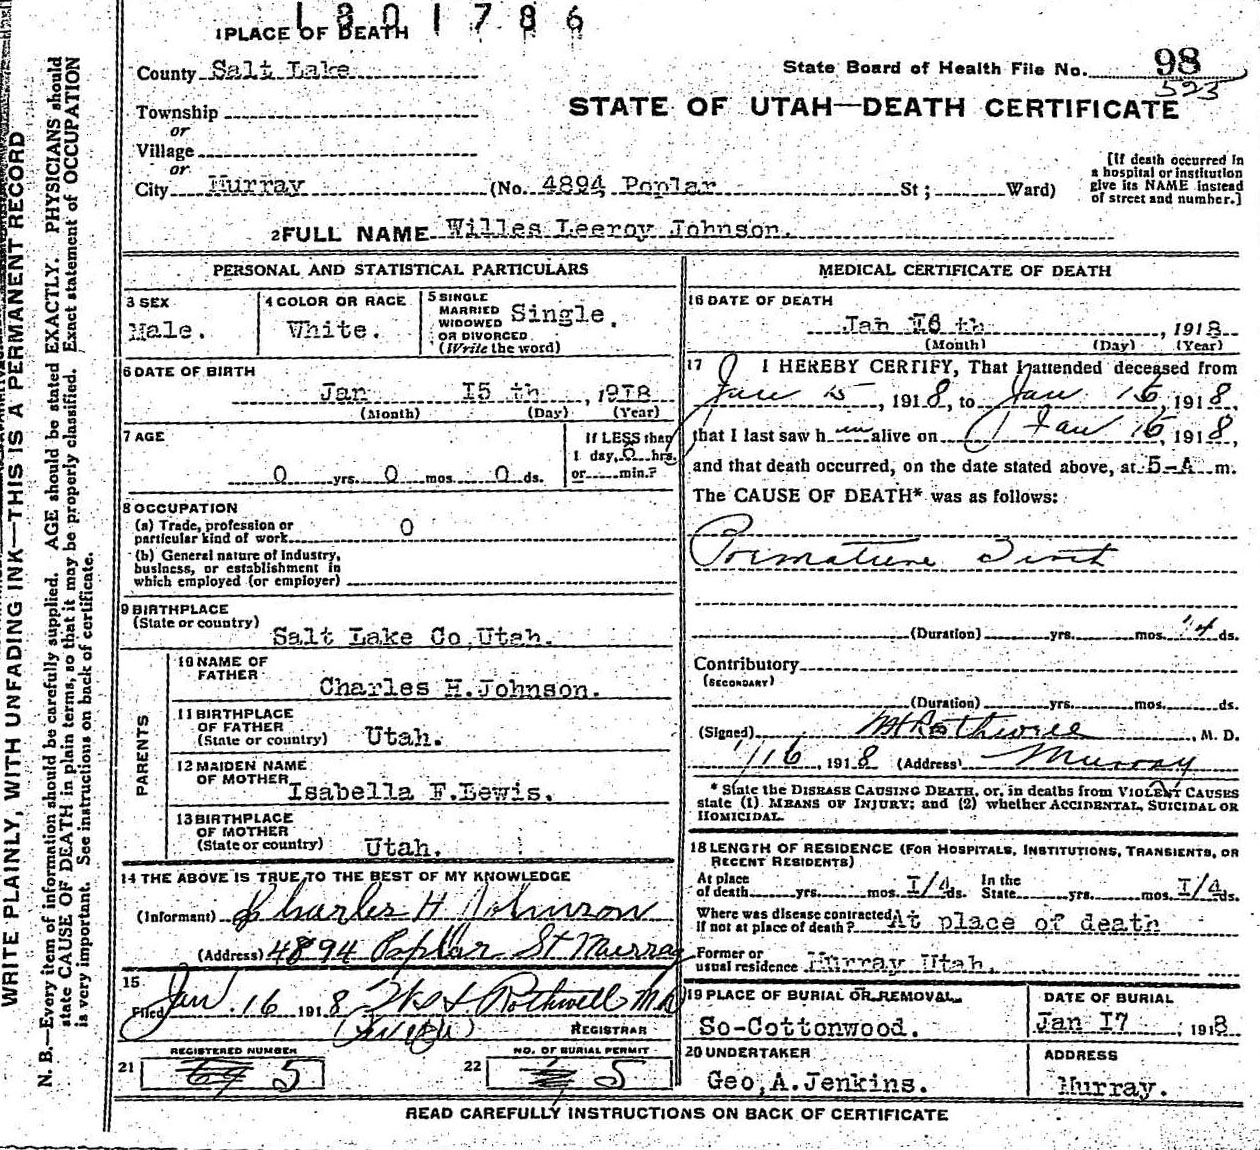 1801786
1 PLACE OF DEATH
County Salt Lake
State Board of Health File No. 98
523
STATE OF UTAH—DEATH CERTIFICATE
Township
or
Village
or
City Murray (No. 4894 Poplar St; Ward)
[If death occurred in
a hospital or institution
give its NAME instead
of street and number.]
2 FULL NAME Willes Leeroy Johnson.
PERSONAL AND STATISTICAL PARTICULARS
3 SEX
Male.
4 COLOR OR RACE
White.
5 SINGLE
MARRIED
WIDOWED
OR DIVORCED
(Write the word)
Single.
6 DATE OF BIRTH
Jan I5 th, 1918
(Month) (Day) (Year)
7 AGE
0 yrs. 0 mos. 0 ds.
If LESS than
1 day, 0 hrs.
or min.?
8 OCCUPATION
(a) Trade, profession or
particular kind of work 0
(b) General nature of Industry,
business, or establishment in
which employed (or employer)
9 BIRTHPLACE
(State or country)
Salt Lake Co, Utah.
PARENTS
10 NAME OF
FATHER
Charles H. Johnson.
11 BIRTHPLACE
OF FATHER
(State or country) Utah.
12 MAIDEN NAME
OF MOTHER
Isabella F. Lewis.
13 BIRTHPLACE
OF MOTHER
(State or country) Utah.
14 THE ABOVE IS TRUE TO THE BEST OF MY KNOWLEDGE
(Informant) Charles H Johnson
(Address) 4894 Poplar St Murray
15
Filed Jan. 16 1918 Rothwell MD
REGISTRAR
REGISTERED NUMBER
21 69 5
NO. OF BURIAL PERMIT
22 5
MEDICAL CERTIFICATE OF DEATH
16 DATE OF DEATH
Jan I6 th, 1918
(Month) (Day) (Year)
17 I HEREBY CERTIFY, That I attended deceased from
Jan 15, 1918, to Jan 16, 1918,
that I last saw h im alive on Jan 16, 1918,
and that death occurred, on the date stated above, at 5-A m.
The CAUSE OF DEATH* was as follows:
Premature Birth
(Duration) yrs. mos. 1/4 ds.
Contributory
(SECONDARY)
(Duration) yrs. mos. ds.
(Signed) Rothwell, M. D.
1/16, 1918 (Address) Murray
* State the DISEASE CAUSING DEATH, or, in deaths from VIOLENT CAUSES
state (1) MEANS OF INJURY; and (2) whether ACCIDENTAL, SUICIDAL OR
HOMICIDAL.
18 LENGTH OF RESIDENCE (FOR HOSPITALS, INSTITUTIONS, TRANSIENTS, OR
RECENT RESIDENTS)
At place
of death yrs. mos. I/4 ds. In the
State yrs. mos. I/4 ds.
Where was disease contracted
if not at place of death? At place of death
Former or
usual residence Murray Utah.
19 PLACE OF BURIAL OR REMOVAL
So-Cottonwood.
DATE OF BURIAL
Jan I7, 1918
20 UNDERTAKER
Geo, A. Jenkins.
ADDRESS
Murray.
READ CAREFULLY INSTRUCTIONS ON BACK OF CERTIFICATE
WRITE PLAINLY, WITH UNFADING INK—THIS IS A PERMANENT RECORD
N. B.—Every item of information should be carefully supplied. AGE should be stated EXACTLY. PHYSICIANS should
state CAUSE OF DEATH in plain terms, so that it may be properly classified. Exact statement of OCCUPATION
is very important. See instructions on back of certificate.